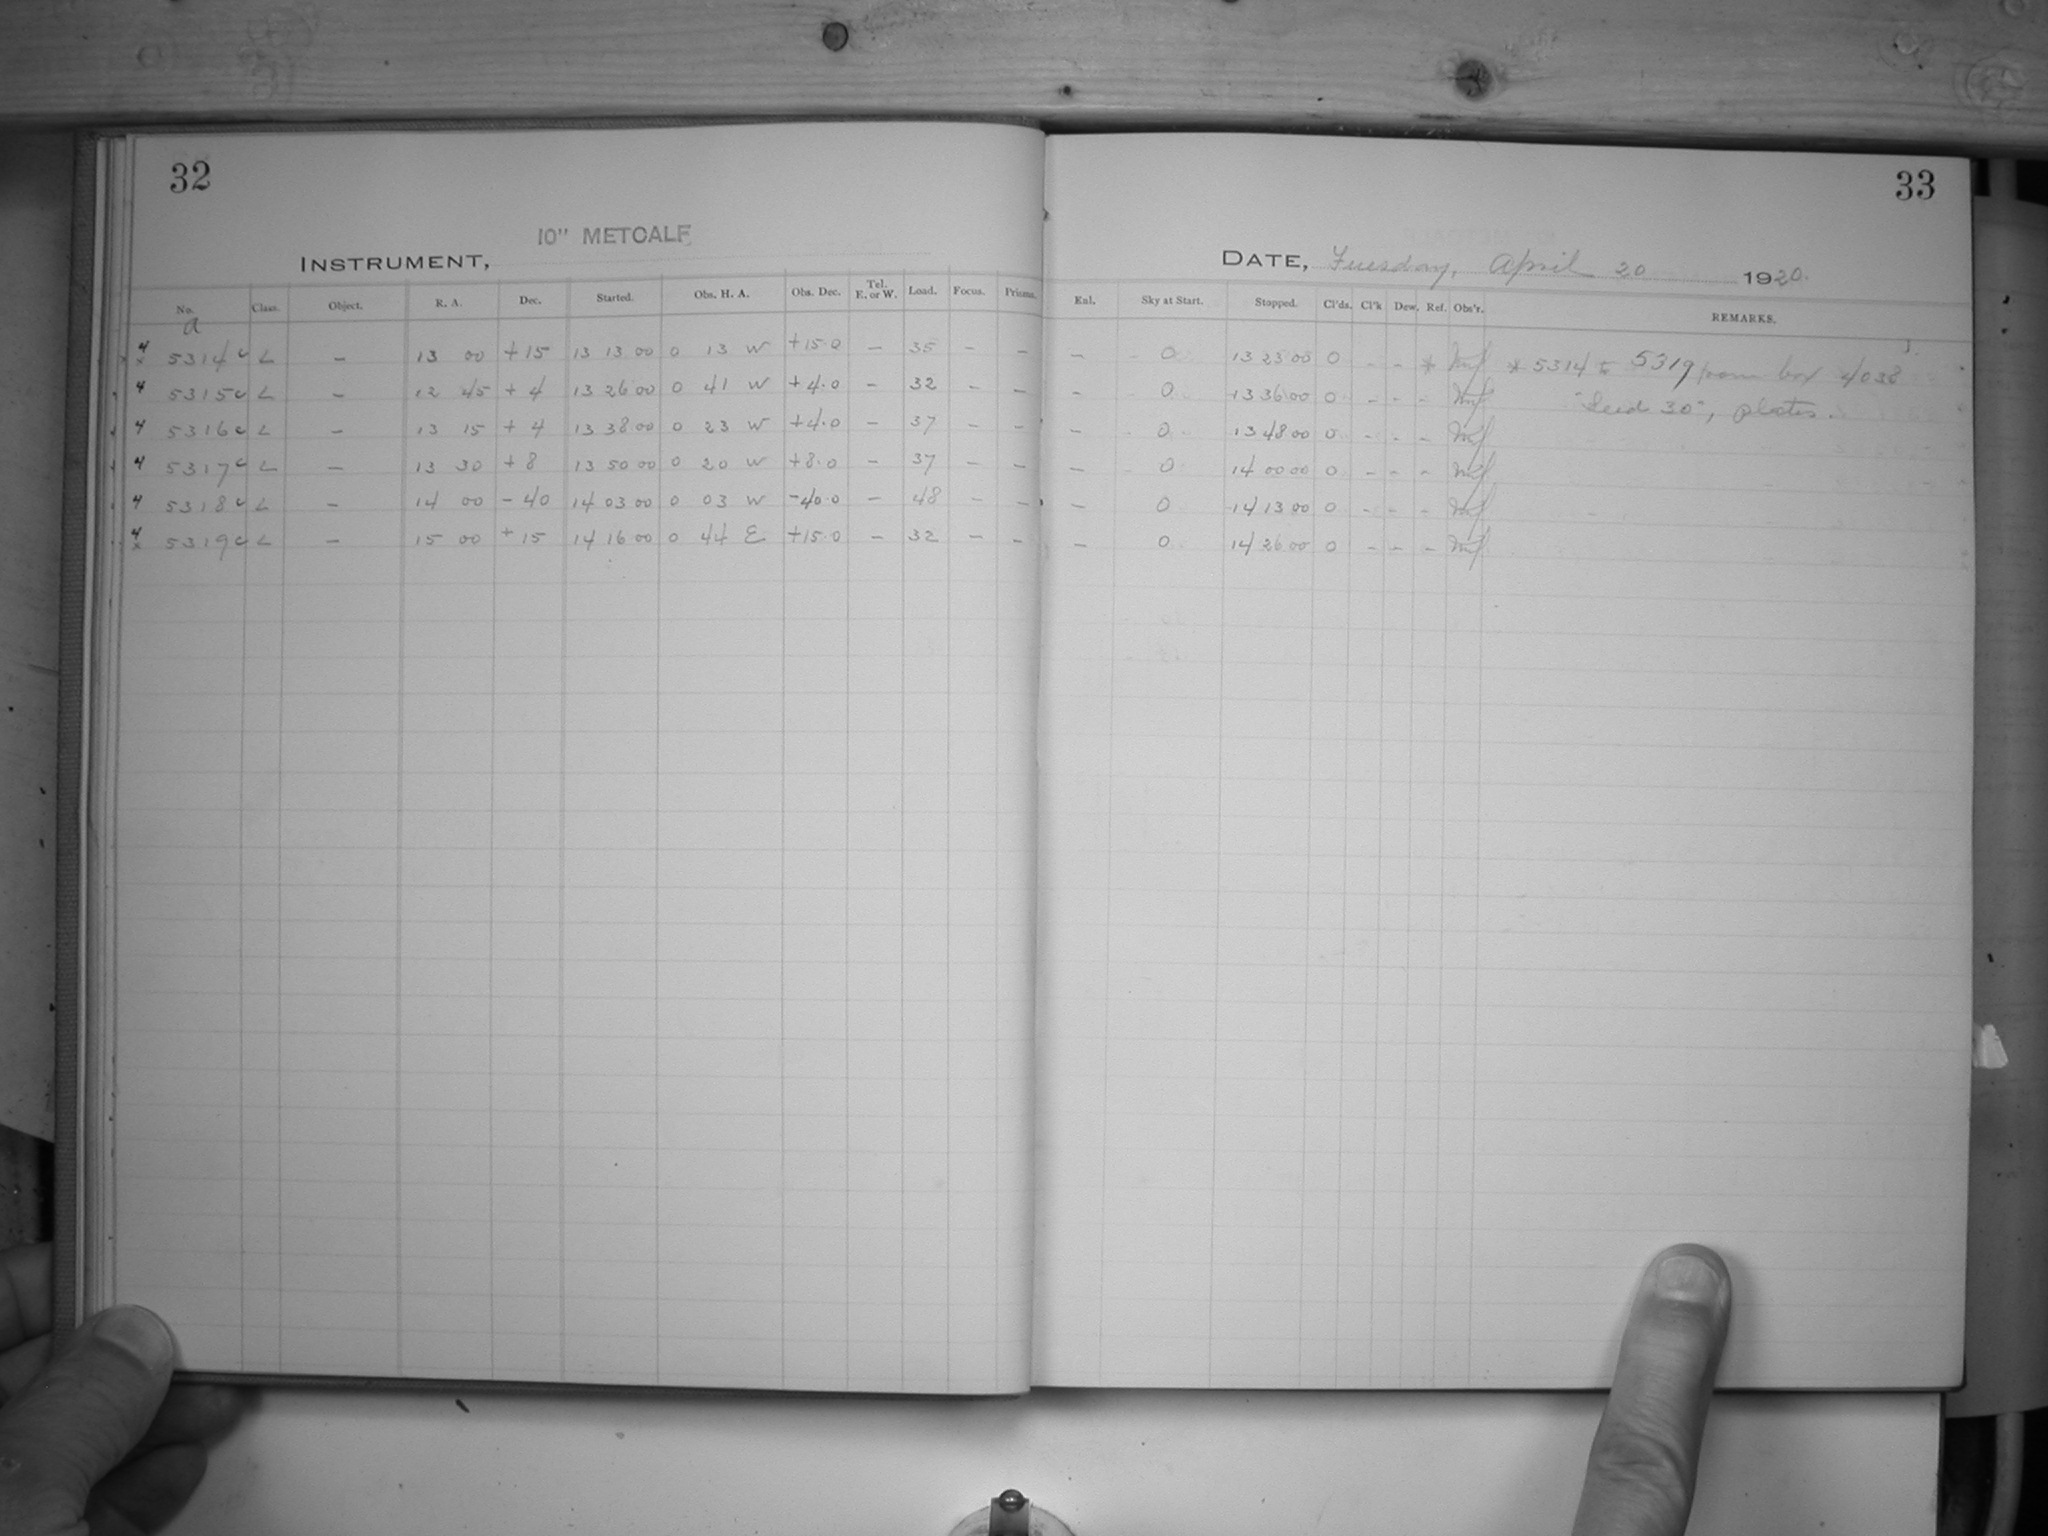 32
33
10" METCALF
INSTRUMENT,
DATE, Tuesday, April 20 1920.
No. Class. Object. R. A. Dec. Started. Obs. H. A. Obs. Dec. Tel. E. or W. Load. Focus. Prisms. Exl. Sky at Start. Stopped. Cl'ds. Cl'k Dew. Ref. Obs'r. REMARKS.
a
4 5314 c L – 13 00 +15 13 13 00 0 13 W +15.0 – 35 – – – 0 13 23 00 0 – – * * 5314 to 5319 from box 4038
4 5315 c L – 12 45 +4 13 26 00 0 41 W +4.0 – 32 – – – 0 13 36 00 0 – – – "Seed 30", plates.
4 5316 c L – 13 15 +4 13 38 00 0 23 W +4.0 – 37 – – – 0 13 48 00 0 – – –
4 5317 c L – 13 30 +8 13 50 00 0 20 W +8.0 – 37 – – – 0 14 00 00 0 – – –
4 5318 c L – 14 00 –40 14 03 00 0 03 W –40.0 – 48 – – – 0 14 13 00 0 – – –
4 5319 c L – 15 00 +15 14 16 00 0 44 E +15.0 – 32 – – – 0 14 26 00 0 – – –